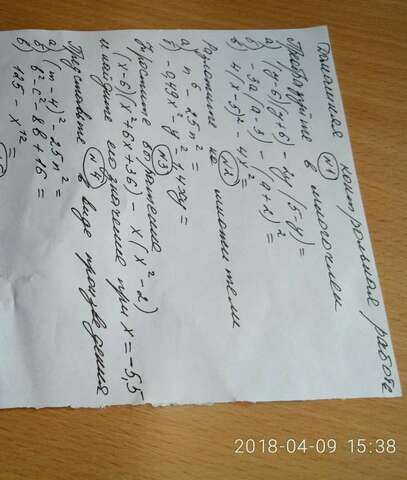 Домашняя контрольная работа
№1
Преобразуйте в многочлен
а) (y-6)(y+6) - 4y(5-y) =
б) -3a(a-3) - (a+2)² =
в) 4(x-5)² - 4x² =
№2
Разложите на множители
а) n⁶ 25n² =
б) -0,49x² y - 1,4xy =
№3
Упростите выражение
(x-6)(x²+6x+36) - x(x²-2)
и найдите его значение при x=-5,5
№4
Представьте в виде произведения
а) (m-4)² - 25n² =
б) b² - c² - 8b + 16 =
в) 125 - x¹² =
2018-04-09 15:38